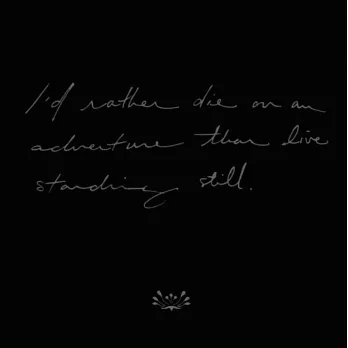 I'd rather die on an
adventure than live
standing still.